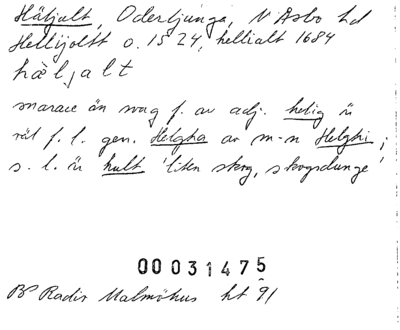 Häljalt, Oderljunga, N Åsbo hd
Hellijoltt o. 1524, hellialt 1684
hàljalt
snarare än svag f. av adj. helig är
väl f. l. gen. Helgha av m-n Helghi;
s. l. är hult 'liten skog, skogsdunge'
00031475
BP Radix Malmöhus ht 91